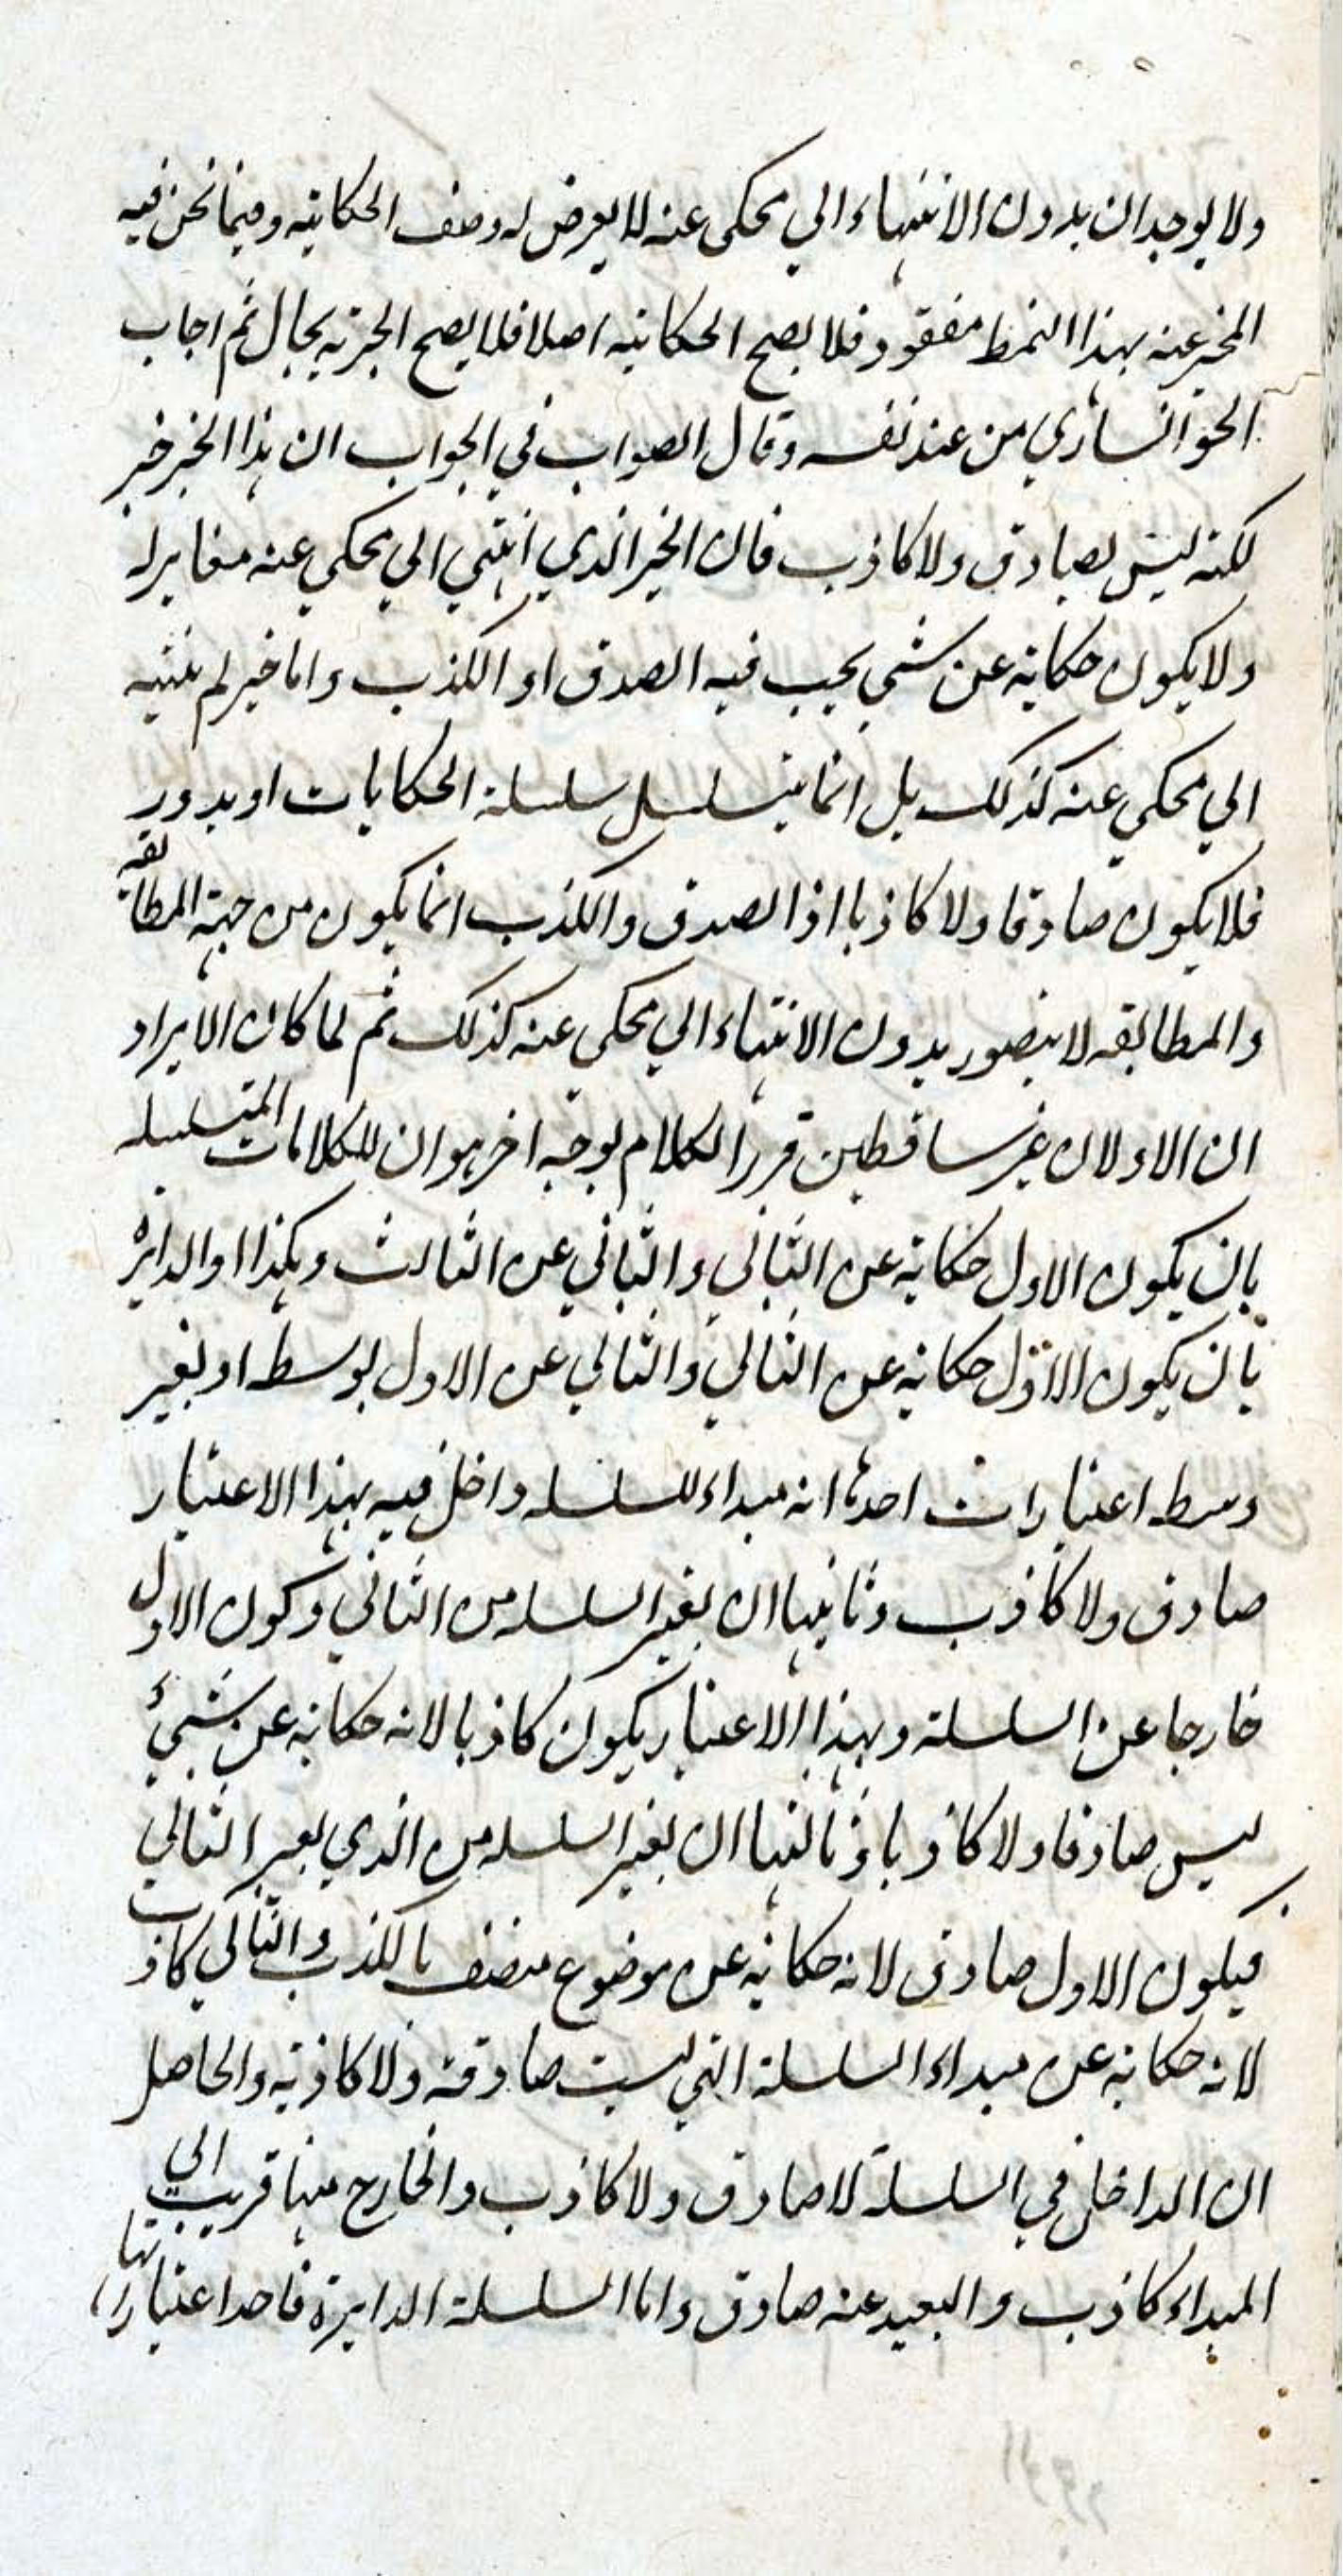 ولا يوجدان بدون الانتهاء الي محكي عنه لا يعرض له وصف الحكايته وفيما نحن فيه
المخبر عنه بهذا النمط مفقود فلا يصح الحكاتيه اصلا فلا يصح الخبريه بحال ثم اجاب
الخوانساري من عند نفسه وقال الصواب في الجواب ان هذا الخبر خبر
لكنه ليس بصادق ولا كاذب فان الخبر الذي انتهي الي محكي عنه مغاير له
ولا يكون حكاية عن شي يجب فيه الصدق او الكذب واما خبر لم ينتيه
الي محكي عنه كذلك بل انما يتسلسل سلسلة الحكايات او يدور
فلا يكون صادقا ولا كاذبا اذ الصدق والكذب انما يكون من جهة المطابقه
والمطابقه لا يتصور بدون الانتهاء الي محكي عنه كذلك ثم لما كان الايراد
ان الاولان غير ساقطين قرر الكلام بوجه اخر هو ان للكلامات المتسلسله
بان يكون الاول حكاية عن الثاني والثاني عن الثالث وهكذا او الدائره
بان يكون الاول حكاية عن الثاني والثاني عن الاول بوسط او بغير
وسط اعتبارات احدها انه مبداء للسلسله داخل فيه بهذا الاعتبار
صادق ولا كاذب وثانيها ان يعتبر السلسله من الثاني وكون الاول
خارجا عن السلسلة وبهذا الاعتبار يكون كاذبا لانه حكاية عن شيئ
ليس صادقا ولا كاذبا وثالثها ان يعتبر السلسله من الذي بعد الثاني
فيكون الاول صادق لانه حكاية عن موضوع متصف بالكذب والثاني كاذب
لانه حكاية عن مبداء السلسلة التي ليست صادقة ولا كاذبة والحاصل
ان الداخل في السلسلة لا صادق ولا كاذب والخارج منها قريب الي
المبداء كاذب والبعيد عنه صادق واما السلسلة الدايرة فاحد اعتباراتها